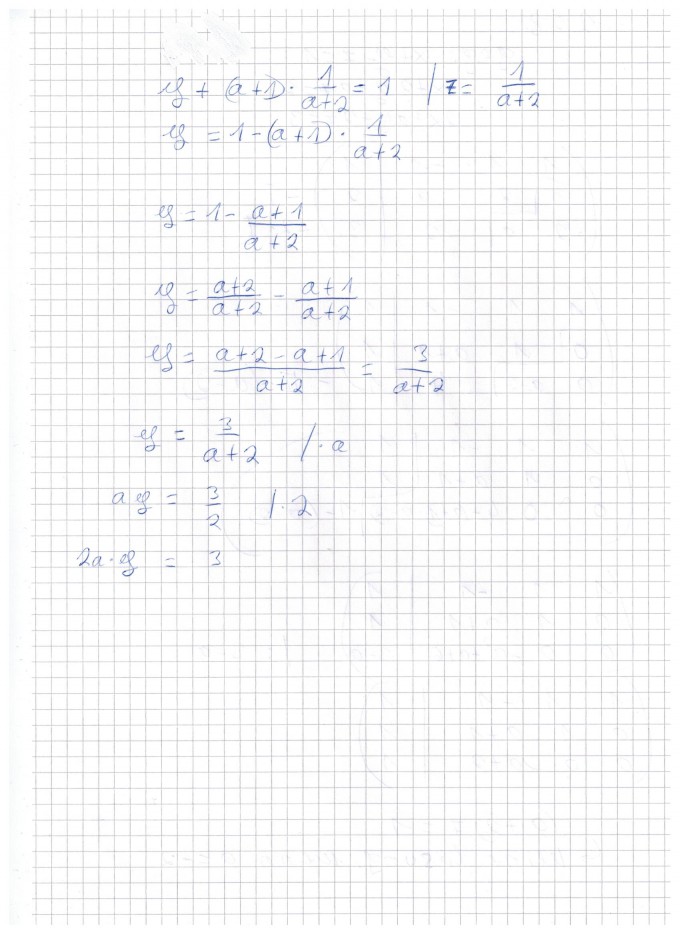 y + (a+1) · 1/(a+2) = 1 | z = 1/(a+2)
y = 1 - (a+1) · 1/(a+2)
y = 1 - (a+1)/(a+2)
y = (a+2)/(a+2) - (a+1)/(a+2)
y = (a+2-a+1)/(a+2) = 3/(a+2)
y = 3/(a+2) /·a
ay = 3/2 /·2
2a·y = 3